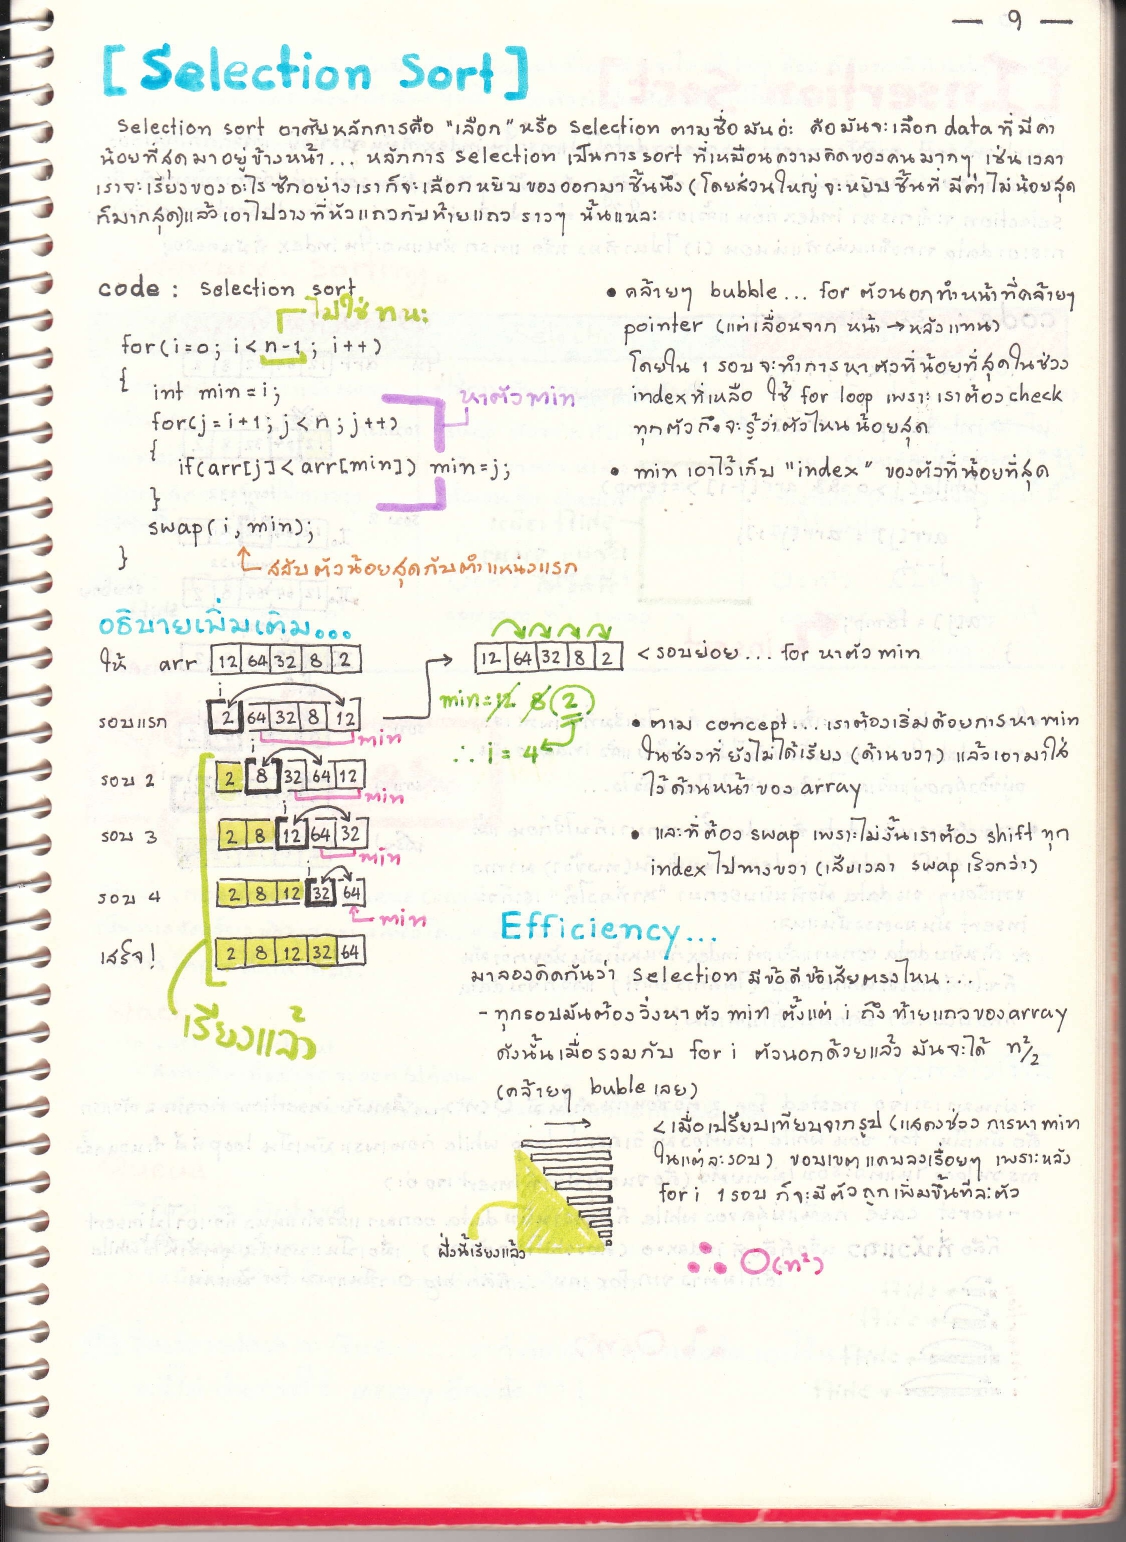 — 9 —
[Selection Sort]
Selection sort อาศัยหลักการคือ "เลือก" หรือ Selection ตามชื่อมันอ่ะ คือมันจะเลือก data ที่มีค่า
น้อยที่สุดมาอยู่ข้างหน้า... หลักการ Selection เป็นการ sort ที่เหมือนความคิดของคนมากๆ เช่น เวลา
เราจะเรียงของอะไรซักอย่าง เราก็จะเลือกหยิบของออกมาชิ้นนึง (โดยส่วนใหญ่จะหยิบชิ้นที่มีค่าไม่น้อยสุด
ก็มากสุด) แล้วเอาไปวางที่หัวแถวกับท้ายแถว ราวๆ นั้นแหละ
code : Selection sort
ไม่ใช่ n นะ
for(i=0; i<n-1; i++)
{
int min=i;
for(j=i+1; j<n; j++)
{
if(arr[j]<arr[min]) min=j;
}
swap(i,min);
}
หาตัว min
สลับตัวน้อยสุดกับตำแหน่งแรก
• คล้ายๆ bubble... for ตัวนอกทำหน้าที่คล้ายๆ
pointer (แต่เลื่อนจาก หน้า→หลัง แทน)
โดยใน 1 รอบจะทำการหาตัวที่น้อยที่สุดในช่วง
index ที่เหลือ ใช้ for loop เพราะเราต้อง check
ทุกตัวถึงจะรู้ว่าตัวไหนน้อยสุด
• min เอาไว้เก็บ "index" ของตัวที่น้อยที่สุด
อธิบายเพิ่มเติม...
ให้ arr 12 64 32 8 2
i
รอบแรก 2 64 32 8 12
min
i
รอบ 2 2 8 32 64 12
min
i
รอบ 3 2 8 12 64 32
min
i
รอบ 4 2 8 12 32 64
min
เสร็จ! 2 8 12 32 64
เรียงแล้ว
12 64 32 8 2 < รอบย่อย... for หาตัว min
min=12 8 2
∴ i = 4
• ตาม concept... เราต้องเริ่มด้วยการหา min
ในช่วงที่ยังไม่ได้เรียง (ด้านขวา) แล้วเอามาใส่
ไว้ด้านหน้าของ array
• และที่ต้อง swap เพราะไม่งั้นเราต้อง shift ทุก
index ไปทางขวา (เสียเวลา swap เร็วกว่า)
Efficiency...
มาลองคิดกันว่า Selection มีข้อดีข้อเสียตรงไหน...
- ทุกรอบมันต้องวิ่งหาตัว min ตั้งแต่ i ถึงท้ายแถวของ array
ดังนั้นเมื่อรวมกับ for i ตัวนอกด้วยแล้ว มันจะได้ n²/2
(คล้ายๆ buble เลย)
< เมื่อเปรียบเทียบจากรูป (แสดงช่วง การหา min
ในแต่ละรอบ) ขอบเขตแคบลงเรื่อยๆ เพราะหลัง
for i 1 รอบ ก็จะมีตัวถูกเพิ่มขึ้นทีละตัว
ฝั่งนี้เรียงแล้ว
∴ O(n²)